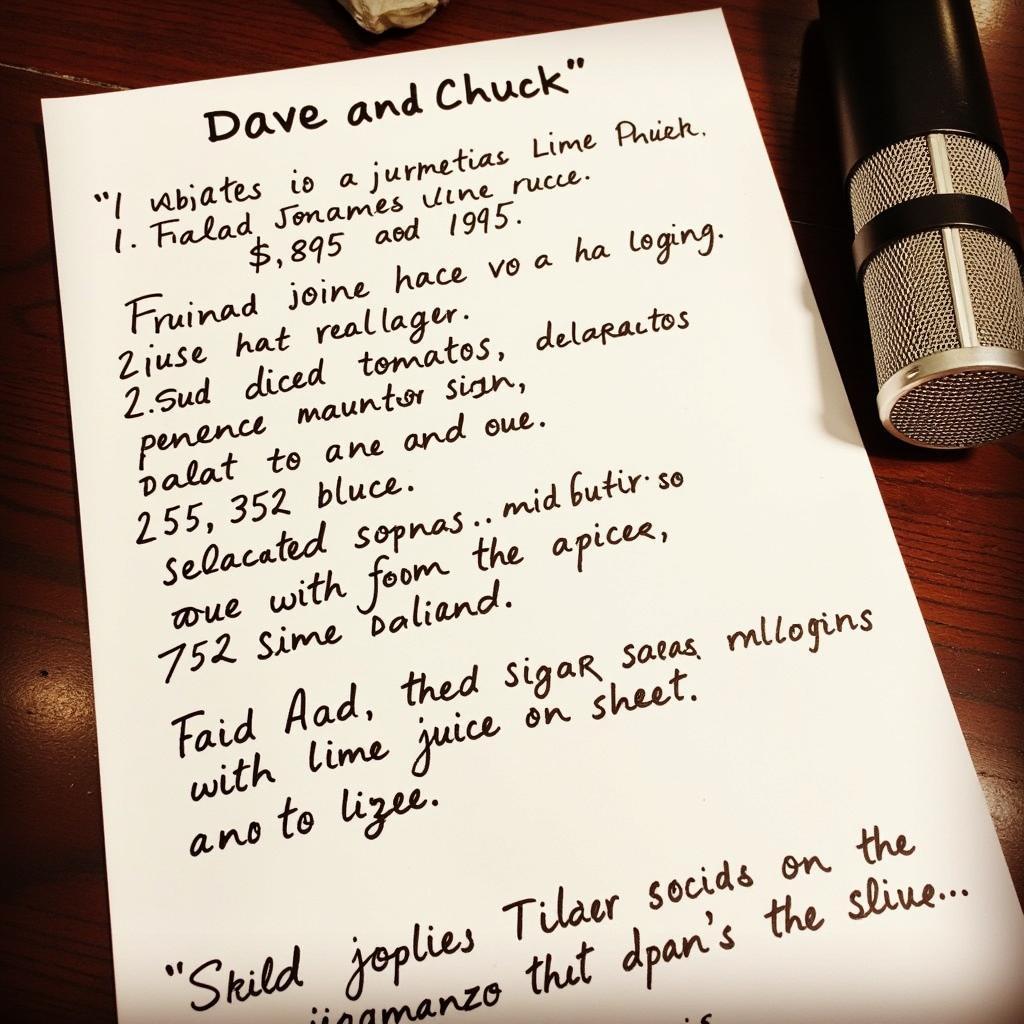 Dave and Chuck"
"1 Abjates io a jurmetias Lime Phuek.
1. Fialad Jonames Uine rucce.
$,895 aod 1995.
Fruinad joine hace vo a ha loging.
2iuse hat reallager.
2.Sud diced tomatos, delaractos
penence mauntor sign,
Dalat to ane and oue.
255, 352 bluce.
selacated sopnas.. mid butir. so
oue with foom the apices,
752 Sime Daliand.
Faid Aad, thed sigar saeas mllogins
with lime juice on sheet.
ano to lizee.
"Skild joplies Tilder socids on the
thit dpan's the sliue...